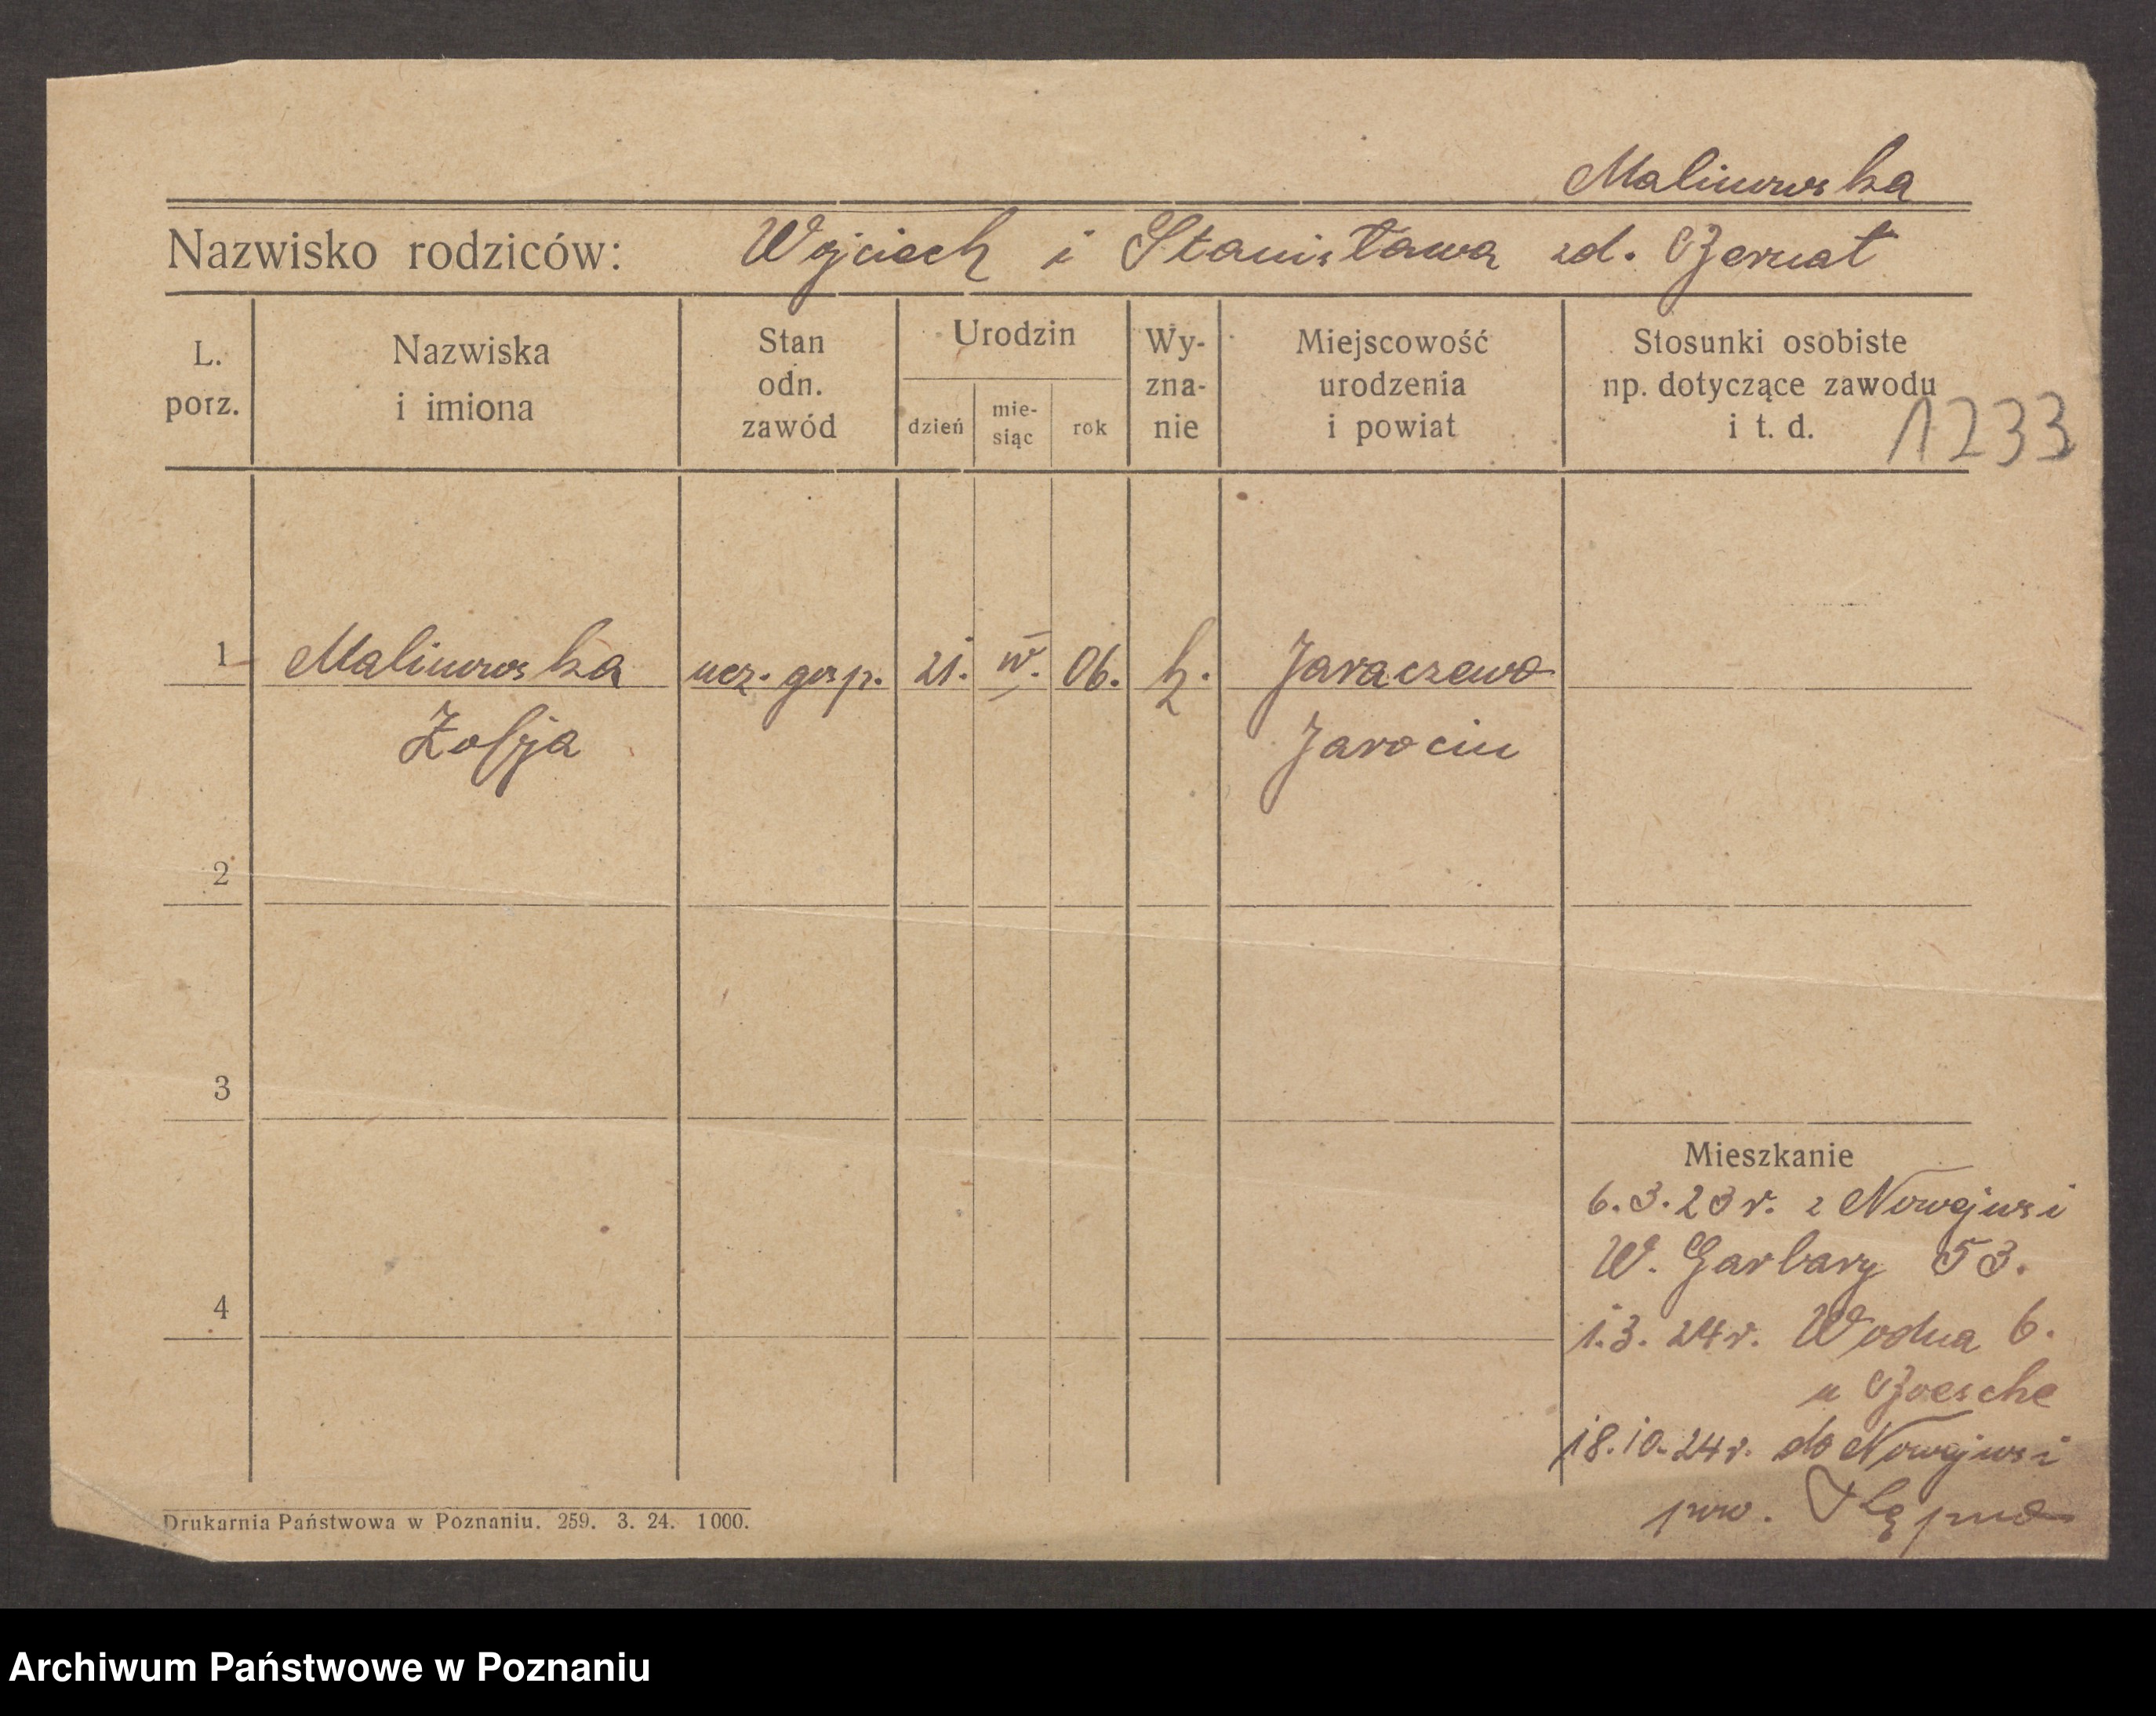 Malinowska
Nazwisko rodziców: Wojciech i Stanisława zd. Bernat
L. porz.
Nazwiska i imiona
Stan odn. zawód
Urodzin
dzień
mie-siąc
rok
Wy-zna-nie
Miejscowość urodzenia i powiat
Stosunki osobiste np. dotyczące zawodu i t. d.
1233
1 Malinowska ucz. gosp. 21. IV. 06. k. Jaraczewo
Zofja Jarocin
2
3
Mieszkanie
6.3.23 r. z Nowejwsi
W. Garbary 53.
4
1.3.24 r. Wodna 6.
u Boesche
18.10.24 r. do Nowejwsi
pow.
Drukarnia Państwowa w Poznaniu. 259. 3. 24. 1000.
Archiwum Państwowe w Poznaniu